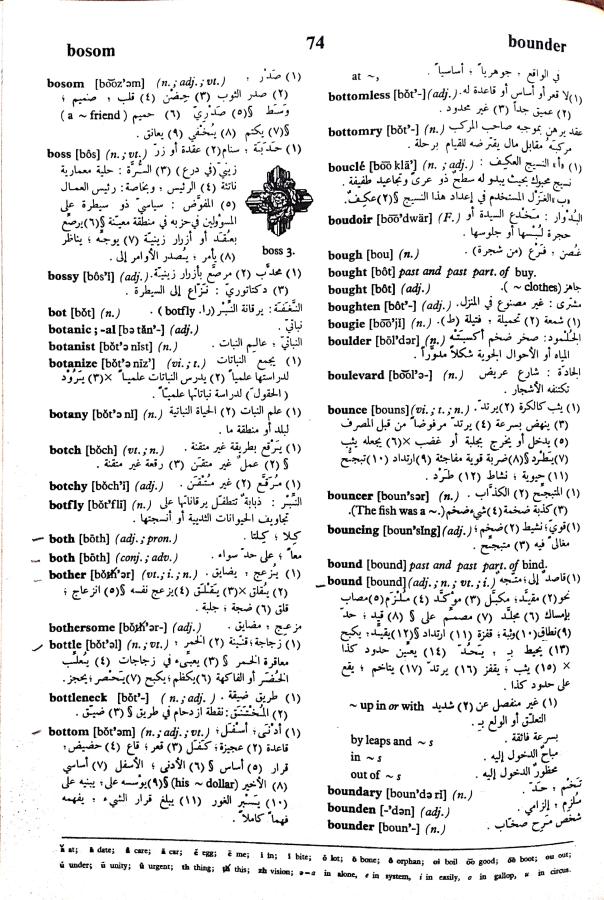 bosom
74
bounder
bosom [bo͝oz'əm] (n.; adj.; vt.) (١) صَدْر ،
(٢) صدر الثوب (٣) حِضْن (٤) قلب ، صميم ؛
وَسَط §(٥) صَدْرِيّ (٦) حميم (a ~ friend)
§(٧) يكتم (٨) يُخْفي (٩) يعانق .
boss [bôs] (n.; vt.) (١) حَدَبَة ، سنام (٢) عقدة أو زرّ
زينيّ (في درع) (٣) السُّرَّة : حلية معمارية
ناتئة (٤) الرئيس ، وبخاصة: رئيس العمال
(٥) المفوَّض : سياسيّ ذو سيطرة على
المسؤولين في حزبه في منطقة معيّنة §(٦) يرصّع
بعُقَد أو أزرار زينيّة (٧) يوجّه ؛ يناظر
(٨) يأمر ، يُصدر الأوامر إلى .
boss 3.
bossy [bôs'i] (adj.) (١) محدَّب (٢) مرصّع بأزرار زينيّة.
(٣) دكتاتوريّ : نَزّاع إلى السيطرة .
bot [bŏt] (n.) النَّغَفَة : يرقانة النِّبْر (را. botfly) .
botanic; -al [bə tăn'-] (adj.) نباتيّ .
botanist [bŏt'ə nĭst] (n.) النباتيّ ، عالِم النبات .
botanize [bŏt'ə nīz'] (vi.; t.) (١) يجمع النباتات
لدراستها علمياً (٢) يدرس النباتات علمياً ×(٣) يَرُود
(الحقول) لدراسة نباتاتها علمياً .
botany [bŏt'ə nĭ] (n.) (١) علم النبات (٢) الحياة النباتية
لبلد أو منطقة ما .
botch [bŏch] (vt.; n.) (١) يُرَقّع بطريقة غير متقنة .
§(٢) عمل غير متقن (٣) رقعة غير متقنة .
botchy [bŏch'ĭ] (adj.) (١) مُرَقَّع (٢) غير مُتْقَن .
botfly [bŏt'flī] (n.) النِّبْر : ذبابة تتطفّل يرقاناتها على
تجاويف الحيوانات الثديية أو أنسجتها .
both [bōth] (adj.; pron.) كِلا ؛ كِلتا .
both [bōth] (conj.; adv.) معاً ؛ على حدّ سواء .
bother [bŏth'ər] (vt.; i.; n.) (١) يُزعج ، يضايق .
(٢) يُقلق ×(٣) يَقْلَق (٤) يزعج نفسه §(٥) انزعاج ؛
قلق (٦) ضجة ؛ جلبة .
bothersome [bŏth'ər-] (adj.) مزعج ، مضايق .
bottle [bŏt'əl] (n.; vt.) (١) زجاجة؛ قنّينة (٢) الخمر ؛
معاقرة الخمر §(٣) يعبّىء في زجاجات (٤) يُعَلِّب
الخُضَر أو الفاكهة (٥) يكظم؛ يكبح (٦) يَحْصر؛ يحجز.
bottleneck [bŏt'-] (n.; adj.) (١) طريق ضيقة .
(٢) المُخْتَنَق: نقطة ازدحام في طريق §(٣) ضيّق .
bottom [bŏt'əm] (n.; adj.; vt.) (١) أدْنى؛ أسفل؛
قاعدة (٢) عجيزة؛ كَفَل (٣) قعر؛ قاع (٤) حضيض؛
قرار (٥) أساس §(٦) الأدنى ؛ الأسفل (٧) أساسي
(٨) الأخير (his ~ dollar) §(٩) يؤسّسه على؛ يبنيه على
(١٠) يَسْبُر الغور (١١) يبلغ قرار الشيء ؛ يفهمه
فهماً كاملاً .
at ~, في الواقع ، جوهرياً ؛ أساسياً .
bottomless [bŏt'-] (adj.) (١) لا قعر أو أساس أو قاعدة له.
(٢) عميق جداً (٣) غير محدود .
bottomry [bŏt'-] (n.) عقد يرهن بموجبه صاحب المركب
مركبَهُ مقابل مال يقترضه للقيام برحلة .
bouclé [bo͞o klā'] (n.; adj.) (١) «أ» النسيج العكيف :
نسيج محبوك بحيث يبدو له سطح ذو عُرى وتجاعيد طفيفة .
«ب» الغَزْل المستخدم في إعداد هذا النسيج §(٢) عكيف.
boudoir [bo͞o'dwär] (F.) البُدْوار : مَخْدع السيدة أو
حجرة لُبسها أو جلوسها .
bough [bou] (n.) غصن ، فَرْع (من شجرة) .
bought [bôt] past and past part. of buy.
bought [bôt] (adj.) جاهز (~ clothes) .
boughten [bôt'-] (adj.) مشترى : غير مصنوع في المنزل.
bougie [bo͞o'jĭ] (n.) (١) شمعة (٢) تحميلة ، فتيلة (ط).
boulder [bōl'dər] (n.) الجُلمود: صخر ضخم أكسبَتْهُ
المياه أو الأحوال الجوية شكلاً مدوَّراً .
boulevard [bo͝ol'ə-] (n.) الجادَّة : شارع عريض
تكتنفه الأشجار .
bounce [bouns] (vi.; t.; n.) (١) يثب كالكرة (٢) يرتدّ .
(٣) ينهض بسرعة (٤) يرتدّ مرفوضاً من قبل المصرف
(٥) يدخل أو يخرج بجلبة أو غضب ×(٦) يجعله يثب
(٧) يَطْرد §(٨) ضربة قوية مفاجئة (٩) ارتداد (١٠) تبجّح
(١١) حيوية ؛ نشاط (١٢) طَرْد .
bouncer [boun'sər] (n.) (١) المتبجح (٢) الكذّاب .
(٣) كذبة ضخمة (٤) شيء ضخم (The fish was a ~.).
bouncing [boun'sĭng] (adj.) (١) قويّ؛ نشيط (٢) ضخم؛
مغالىً فيه (٣) متبجّح .
bound [bound] past and past part. of bind.
bound [bound] (adj.; n.; vt.; i.) (١) قاصدٌ إلى؛ متّجه
نحو (٢) مقيَّد؛ مكبَّل (٣) موكَّد (٤) مُلْزَم (٥) مصاب
بإمساك (٦) مجلّد (٧) مصمّم على §(٨) قيد ؛ حدّ
(٩) نطاق (١٠) وثبة؛ قفزة (١١) ارتداد §(١٢) يقيِّد؛ يكبح
(١٣) يحيط بـ ، يَحُدّ (١٤) يعيّن حدود كذا
×(١٥) يثب ؛ يقفز (١٦) يرتدّ (١٧) يتاخم ؛ يقع
على حدود كذا .
~ up in or with (١) غير منفصل عن (٢) شديد
التعلّق أو الولع بـ .
by leaps and ~s بسرعة فائقة .
in ~s مباحٌ الدخول إليه .
out of ~s محظورٌ الدخول إليه .
boundary [boun'də rĭ] (n.) تَخْم ، حدّ .
bounden [-'dən] (adj.) مُلْزِم ، إلزامي .
bounder [boun'-] (n.) شخص مَرِح صخّاب .
ă at; ā date; â care; ä car; ĕ egg; ē me; ĭ in; ī bite; ŏ lot; ō bone; ô orphan; oi boil o͝o good; o͞o boot; ou out;
ŭ under; ū unity; û urgent; th thing; th this; zh vision; ə=a in alone, e in system, i in easily, o in gallop, u in circus.